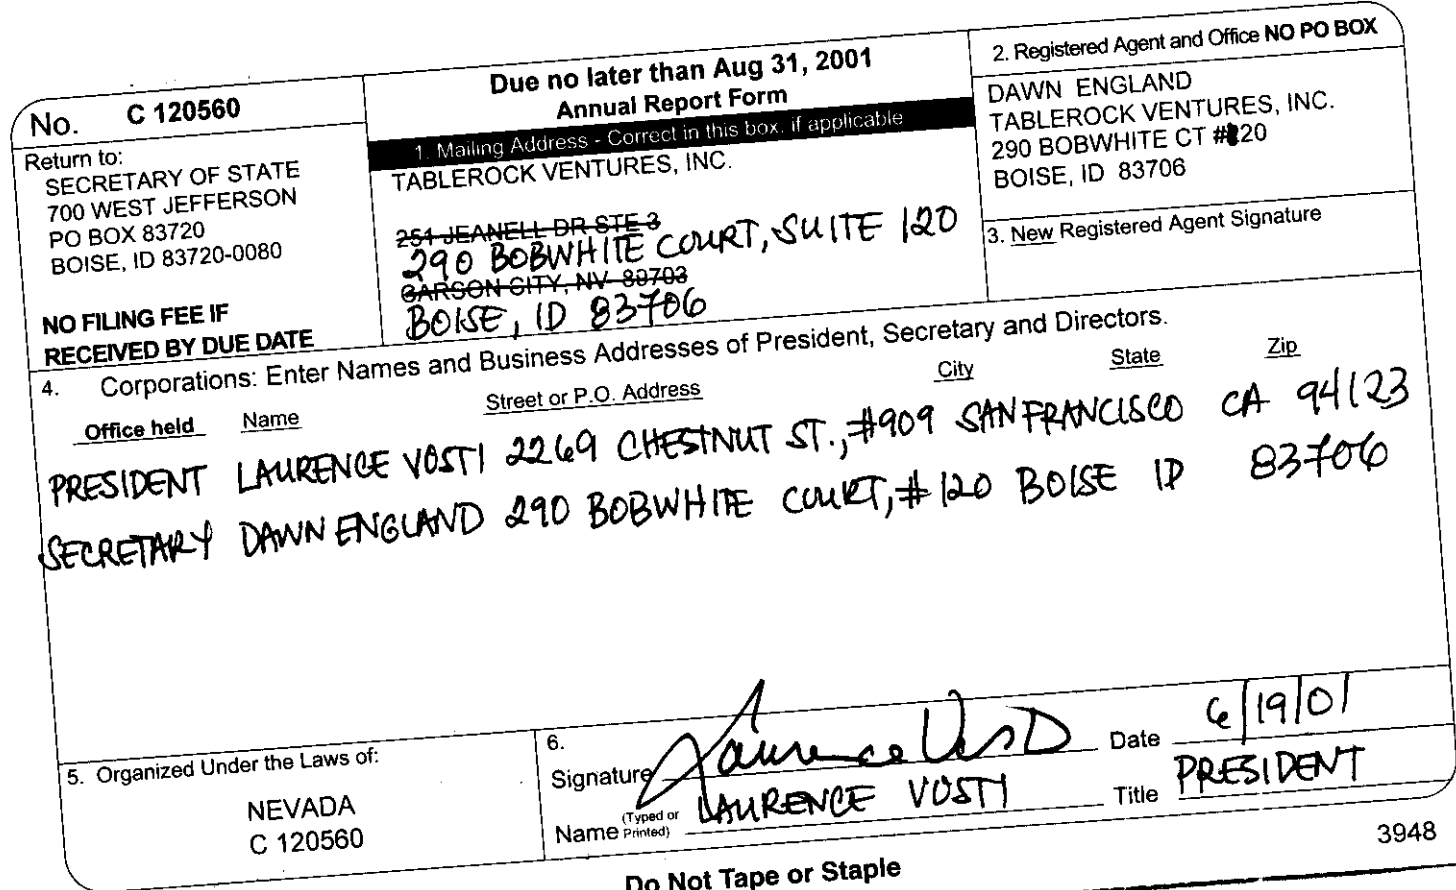 No. C 120560
Return to:
SECRETARY OF STATE
700 WEST JEFFERSON
PO BOX 83720
BOISE, ID 83720-0080
NO FILING FEE IF
RECEIVED BY DUE DATE
Due no later than Aug 31, 2001
Annual Report Form
1. Mailing Address - Correct in this box, if applicable
TABLEROCK VENTURES, INC.
251 JEANELL DR STE 3
290 BOBWHITE COURT, SUITE 120
CARSON CITY, NV 89703
BOISE, ID 83706
2. Registered Agent and Office NO PO BOX
DAWN ENGLAND
TABLEROCK VENTURES, INC.
290 BOBWHITE CT #120
BOISE, ID 83706
3. New Registered Agent Signature
4. Corporations: Enter Names and Business Addresses of President, Secretary and Directors.
Office held Name Street or P.O. Address City State Zip
PRESIDENT LAURENCE VOSTI 2269 CHESTNUT ST., #909 SAN FRANCISCO CA 94123
SECRETARY DAWN ENGLAND 290 BOBWHITE COURT, #120 BOISE ID 83706
5. Organized Under the Laws of:
NEVADA
C 120560
6.
Signature Laurence Vosti Date 6/19/01
Name (Typed or Printed) LAURENCE VOSTI Title PRESIDENT
3948
Do Not Tape or Staple